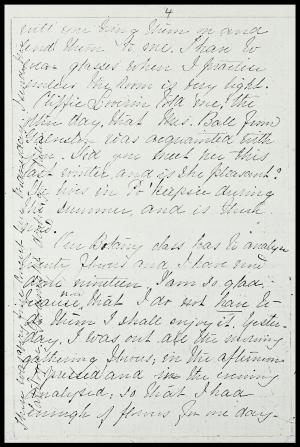 4
will you bring them in and
send them to me. I have to
wear glasses when I practice
unless the room is very light.
the
other day, that Mrs. Ball from
was acquainted with
you. Did you meet her this
last winter and is she pleasant?
She lives in Po'keepsie during
the summer, and is there
now.
Our Botany class has to analyze
twenty flowers and I have now
done nineteen. I am so glad,
because, now that I do not have to
do them I shall enjoy it. Yester-
day, I was out all the morning
gathering flowers, in the afternoon
I and in the evening
analysed, so that I had
enough of flowers for one day.